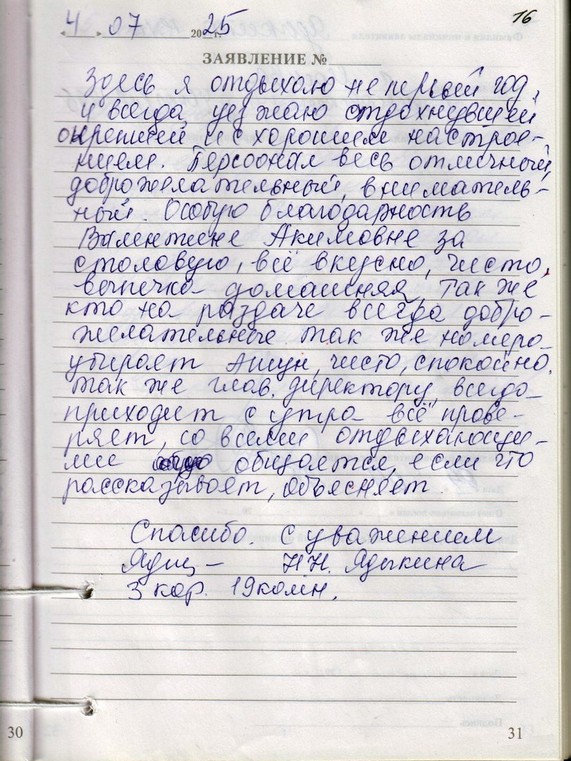 16
4 07 2025
ЗАЯВЛЕНИЕ №
Здесь я отдыхаю не первый год,
и всегда уезжаю отдохнувшей
окрепшей и с хорошим настрое-
нием. Персонал весь отличный,
доброжелательный, вниматель-
ный. Особую благодарность
Валентине Акимовне за
столовую, всё вкусно, чисто,
выпечка домашняя. Так же
кто на раздаче всегда добро-
желательные так же номера
убирает чисто, спокойно.
так же глав. директору, всегда
приходит с утра всё прове-
ряет, со всеми отдыхающи-
ми общается, если что
рассказывает, объясняет.
Спасибо. С уважением
Н.Н. Ядыкина
3 кор. 19 комн.
30
31